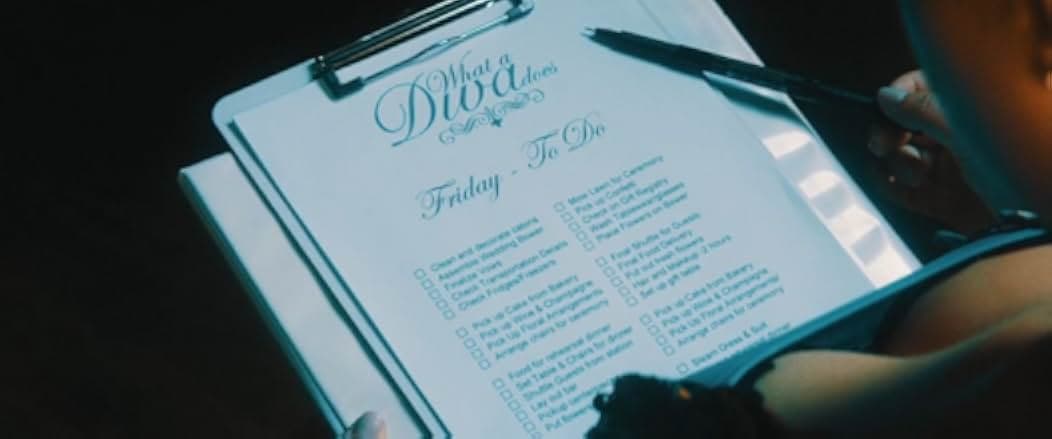 What a
Diva does
Friday - To Do
Clean and decorate
Assemble Wedding Bower
Finalize Vows
Check Transportation Details
Check
Pick up Cake from Bakery
Pick up Wine & Champagne
Pick Up Floral Arrangements
Arrange chairs for ceremony
Food for rehearsal dinner
Set Table & Chairs for dinner
Shuttle Guests from station
Lay out bar
Pickup
Put flowers
Mow Lawn for Ceremony
Pick up Confetti
Check on Gift Registry
Wash
Place Flowers on Bower
Final Shuttle for Guests
Final Food Delivery
Put out fresh flowers
Hair and Makeup 3 hours
Set up gift table
Pick up Cake from Bakery
Pick up Wine & Champagne
Pick Up Floral Arrangements
Arrange chairs for ceremony
Steam Dress & Suit